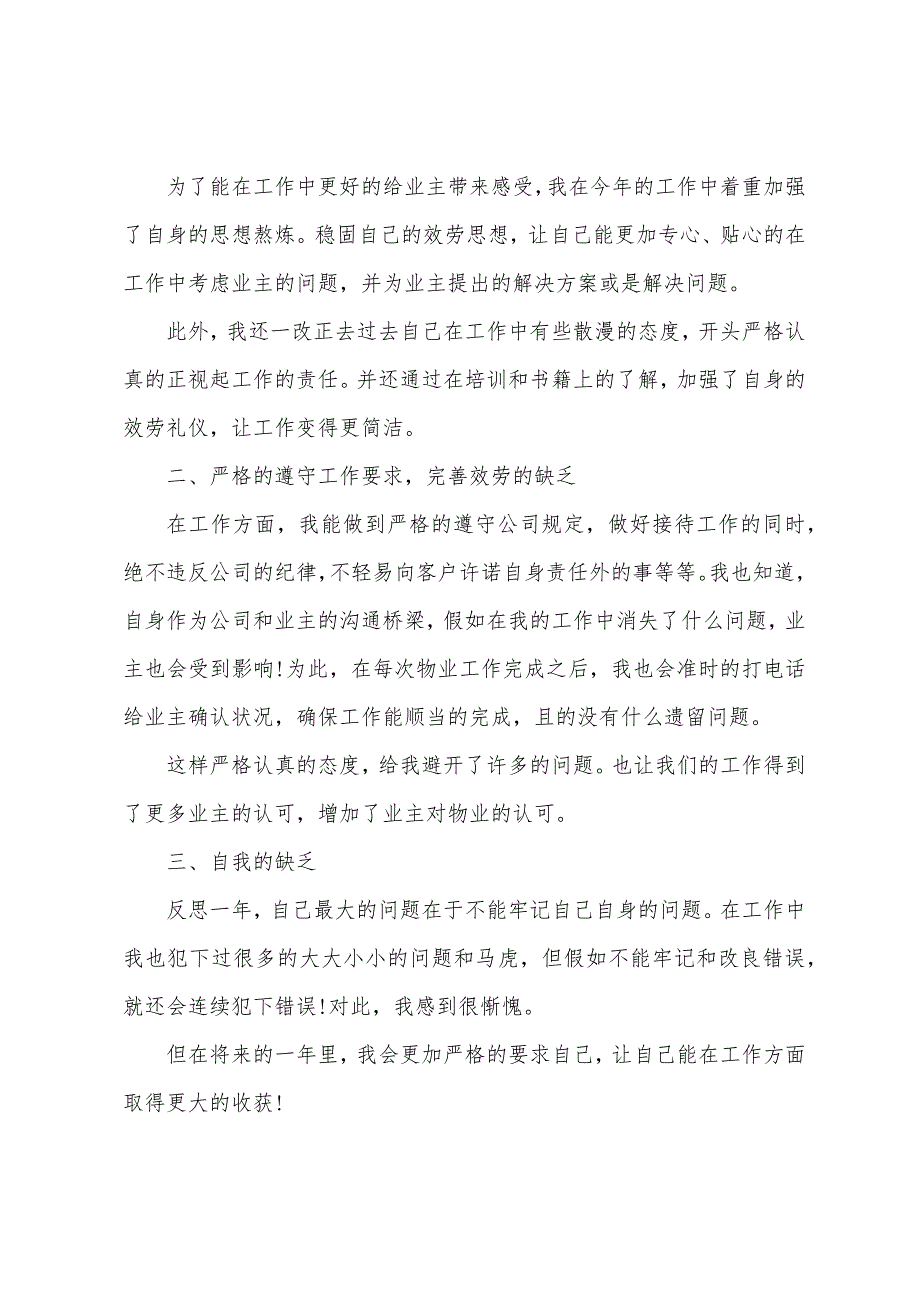 为了能在工作中更好的给业主带来感受，我在今年的工作中着重加强
了自身的思想熬炼。稳固自己的效劳思想，让自己能更加专心、贴心的在
工作中考虑业主的问题，并为业主提出的解决方案或是解决问题。
此外，我还一改正去过去自己在工作中有些散漫的态度，开头严格认
真的正视起工作的责任。并还通过在培训和书籍上的了解，加强了自身的
效劳礼仪，让工作变得更简洁。
二、严格的遵守工作要求，完善效劳的缺乏
在工作方面，我能做到严格的遵守公司规定，做好接待工作的同时，
绝不违反公司的纪律，不轻易向客户许诺自身责任外的事等等。我也知道，
自身作为公司和业主的沟通桥梁，假如在我的工作中消失了什么问题，业
主也会受到影响!为此，在每次物业工作完成之后，我也会准时的打电话
给业主确认状况，确保工作能顺当的完成，且的没有什么遗留问题。
这样严格认真的态度，给我避开了许多的问题。也让我们的工作得到
了更多业主的认可，增加了业主对物业的认可。
三、自我的缺乏
反思一年，自己最大的问题在于不能牢记自己自身的问题。在工作中
我也犯下过很多的大大小小的问题和马虎，但假如不能牢记和改良错误，
就还会连续犯下错误!对此，我感到很惭愧。
但在将来的一年里，我会更加严格的要求自己，让自己能在工作方面
取得更大的收获!